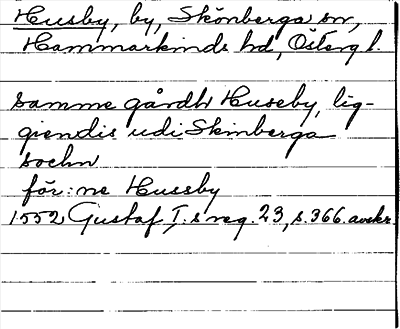 Husby, by, Skönberga sn,
Hammarkinds hd, Östergl.
samme gårdh Huseby, lig-
giendis udi Skinberga
sochn
för:ne Hussby
1552 Gustaf I:s reg. 23, s. 366. avskr.